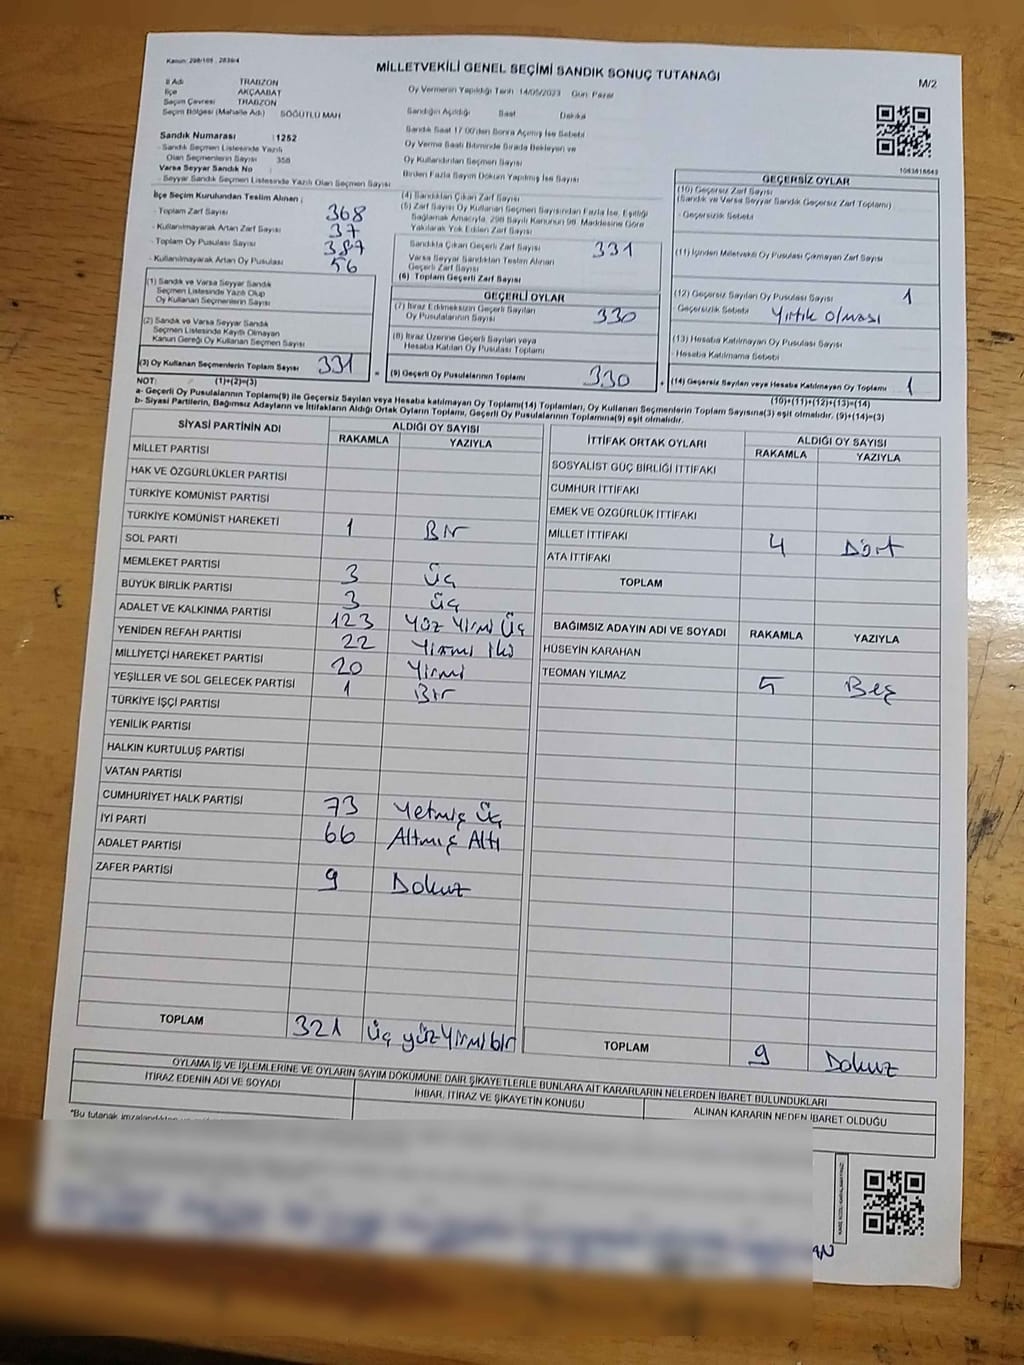 Kanun: 298/105 , 2839/4
MİLLETVEKİLİ GENEL SEÇİMİ SANDIK SONUÇ TUTANAĞI
M/2
İl Adı TRABZON
İlçe AKÇAABAT
Seçim Çevresi TRABZON
Seçim Bölgesi (Mahalle Adı) SÖĞÜTLÜ MAH
Sandık Numarası : 1252
- Sandık Seçmen Listesinde Yazılı
Olan Seçmenlerin Sayısı 358
Varsa Seyyar Sandık No :
- Seyyar Sandık Seçmen Listesinde Yazılı Olan Seçmen Sayısı
Oy Vermenin Yapıldığı Tarih :14/05/2023 Gün: Pazar
Sandığın Açıldığı Saat Dakika
Sandık Saat 17.00'den Sonra Açılmış İse Sebebi
Oy Verme Saati Bitiminde Sırada Bekleyen ve
Oy Kullandırılan Seçmen Sayısı
Birden Fazla Sayım Döküm Yapılmış İse Sayısı
İlçe Seçim Kurulundan Teslim Alınan ;
- Toplam Zarf Sayısı 368
- Kullanılmayarak Artan Zarf Sayısı 37
- Toplam Oy Pusulası Sayısı 387
- Kullanılmayarak Artan Oy Pusulası 56
(1) Sandık ve Varsa Seyyar Sandık
Seçmen Listesinde Yazılı Olup
Oy Kullanan Seçmenlerin Sayısı
(2) Sandık ve Varsa Seyyar Sandık
Seçmen Listesinde Kayıtlı Olmayan
Kanun Gereği Oy Kullanan Seçmen Sayısı
(3) Oy Kullanan Seçmenlerin Toplam Sayısı 331
(4) Sandıktan Çıkan Zarf Sayısı
(5) Zarf Sayısı Oy Kullanan Seçmen Sayısından Fazla İse, Eşitliği
Sağlamak Amacıyla, 298 Sayılı Kanunun 98. Maddesine Göre
Yakılarak Yok Edilen Zarf Sayısı
Sandıkta Çıkan Geçerli Zarf Sayısı 331
Varsa Seyyar Sandıktan Teslim Alınan
Geçerli Zarf Sayısı
(6) Toplam Geçerli Zarf Sayısı
GEÇERLİ OYLAR
(7) İtiraz Edilmeksizin Geçerli Sayılan
Oy Pusulalarının Sayısı 330
(8) İtiraz Üzerine Geçerli Sayılan veya
Hesaba Katılan Oy Pusulası Toplamı
= (9) Geçerli Oy Pusulalarının Toplamı 330
1063618643
GEÇERSİZ OYLAR
(10) Geçersiz Zarf Sayısı
(Sandık ve Varsa Seyyar Sandık Geçersiz Zarf Toplamı)
- Geçersizlik Sebebi
(11) İçinden Milletvekili Oy Pusulası Çıkmayan Zarf Sayısı
(12) Geçersiz Sayılan Oy Pusulası Sayısı 1
Geçersizlik Sebebi Yırtık olması
(13) Hesaba Katılmayan Oy Pusulası Sayısı
- Hesaba Katılmama Sebebi
+ (14) Geçersiz Sayılan veya Hesaba Katılmayan Oy Toplamı 1
NOT: (1)+(2)=(3) (10)+(11)+(12)+(13)=(14)
a- Geçerli Oy Pusulalarının Toplamı(9) ile Geçersiz Sayılan veya Hesaba katılmayan Oy Toplamı(14) Toplamları, Oy Kullanan Seçmenlerin Toplam Sayısına(3) eşit olmalıdır. (9)+(14)=(3)
b- Siyasi Partilerin, Bağımsız Adayların ve İttifakların Aldığı Ortak Oyların Toplamı, Geçerli Oy Pusulalarının Toplamına(9) eşit olmalıdır.
SİYASİ PARTİNİN ADI ALDIĞI OY SAYISI
RAKAMLA YAZIYLA
MİLLET PARTİSİ
HAK VE ÖZGÜRLÜKLER PARTİSİ
TÜRKİYE KOMÜNİST PARTİSİ
TÜRKİYE KOMÜNİST HAREKETİ 1 Bir
SOL PARTİ
MEMLEKET PARTİSİ 3 Üç
BÜYÜK BİRLİK PARTİSİ 3 üç
ADALET VE KALKINMA PARTİSİ 123 Yüz Yirmi Üç
YENİDEN REFAH PARTİSİ 22 Yirmi iki
MİLLİYETÇİ HAREKET PARTİSİ 20 Yirmi
YEŞİLLER VE SOL GELECEK PARTİSİ 1 Bir
TÜRKİYE İŞÇİ PARTİSİ
YENİLİK PARTİSİ
HALKIN KURTULUŞ PARTİSİ
VATAN PARTİSİ
CUMHURİYET HALK PARTİSİ 73 Yetmiş Üç
İYİ PARTİ 66 Altmış Altı
ADALET PARTİSİ
ZAFER PARTİSİ 9 Dokuz
TOPLAM 321 Üç yüz Yirmi bir
İTTİFAK ORTAK OYLARI ALDIĞI OY SAYISI
RAKAMLA YAZIYLA
SOSYALİST GÜÇ BİRLİĞİ İTTİFAKI
CUMHUR İTTİFAKI
EMEK VE ÖZGÜRLÜK İTTİFAKI
MİLLET İTTİFAKI 4 Dört
ATA İTTİFAKI
TOPLAM
BAĞIMSIZ ADAYIN ADI VE SOYADI RAKAMLA YAZIYLA
HÜSEYİN KARAHAN
TEOMAN YILMAZ 5 Beş
TOPLAM 9 Dokuz
OYLAMA İŞ VE İŞLEMLERİNE VE OYLARIN SAYIM DÖKÜMÜNE DAİR ŞİKAYETLERLE BUNLARA AİT KARARLARIN NELERDEN İBARET BULUNDUKLARI
İTİRAZ EDENİN ADI VE SOYADI İHBAR, İTİRAZ VE ŞİKAYETİN KONUSU ALINAN KARARIN NEDEN İBARET OLDUĞU
"Bu tutanak